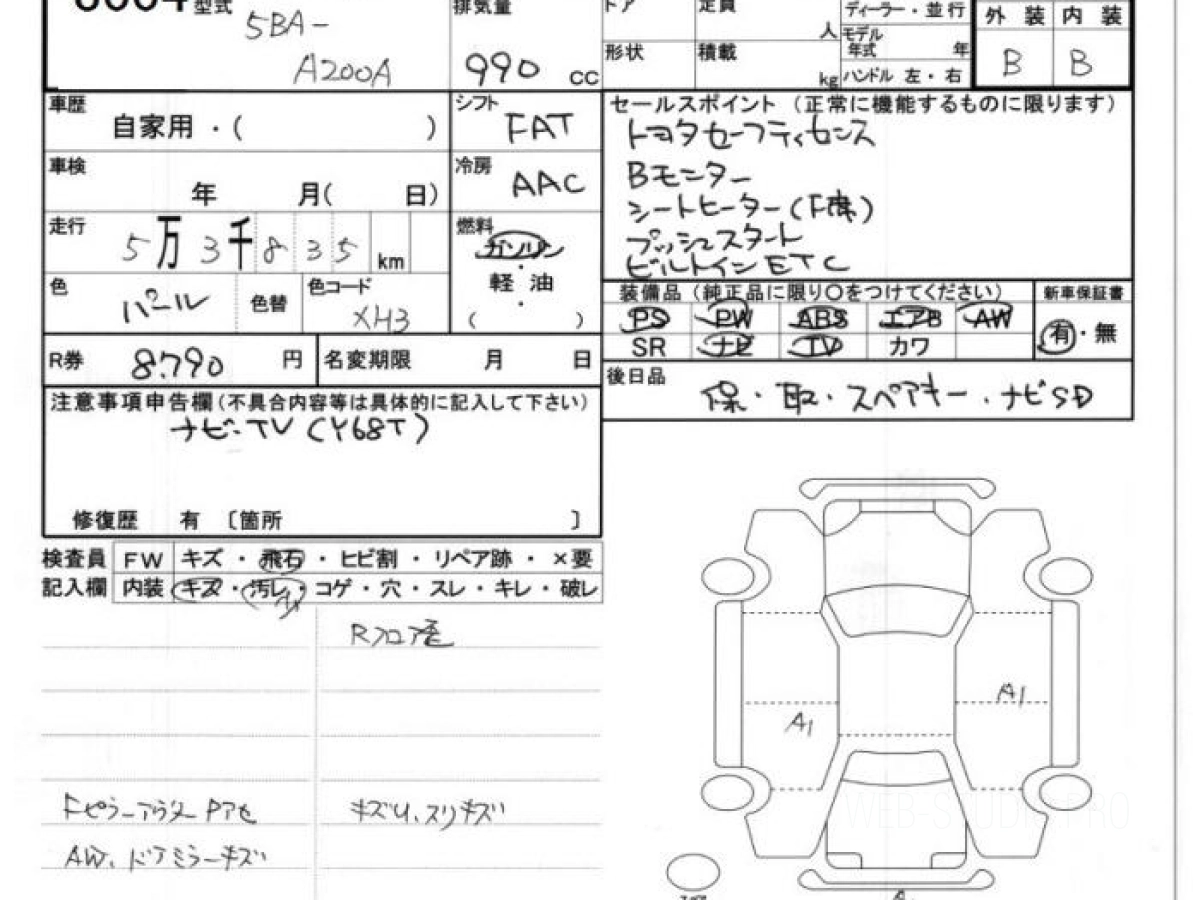 型式 5BA-
A200A
排気量
990 cc
ドア
定員
人
形状
積載
kg
ディーラー・並行
モデル年式 年
ハンドル 左・右
外装 内装
B B
車歴
自家用・( )
シフト
FAT
車検
年 月( 日)
冷房
AAC
走行
5万3千835km
燃料
ガソリン
・
軽油
・
( )
色
パール
色替
色コード
XH3
R券 8790 円
名変期限 月 日
セールスポイント(正常に機能するものに限ります)
トヨタセーフティセンス
Bモニター
シートヒーター(F席)
プッシュスタート
ビルトインETC
装備品(純正品に限り○をつけてください)
新車保証書
PS PW ABS エアB AW
有・無
SR ナビ TV カワ
後日品
保・取・スペアキー・ナビSD
注意事項申告欄(不具合内容等は具体的に記入して下さい)
ナビ・TV(Y68T)
修復歴 有 〔箇所 〕
検査員
記入欄
FW キズ・飛石・ヒビ割・リペア跡・×要
内装 キズ・汚レ・コゲ・穴・スレ・キレ・破レ
Rフロア
A1
A1
Fピラーアウター Pアセ
キズU、スリキズ
AW、ドアミラーキズ
WEB-STUDIO.PRO